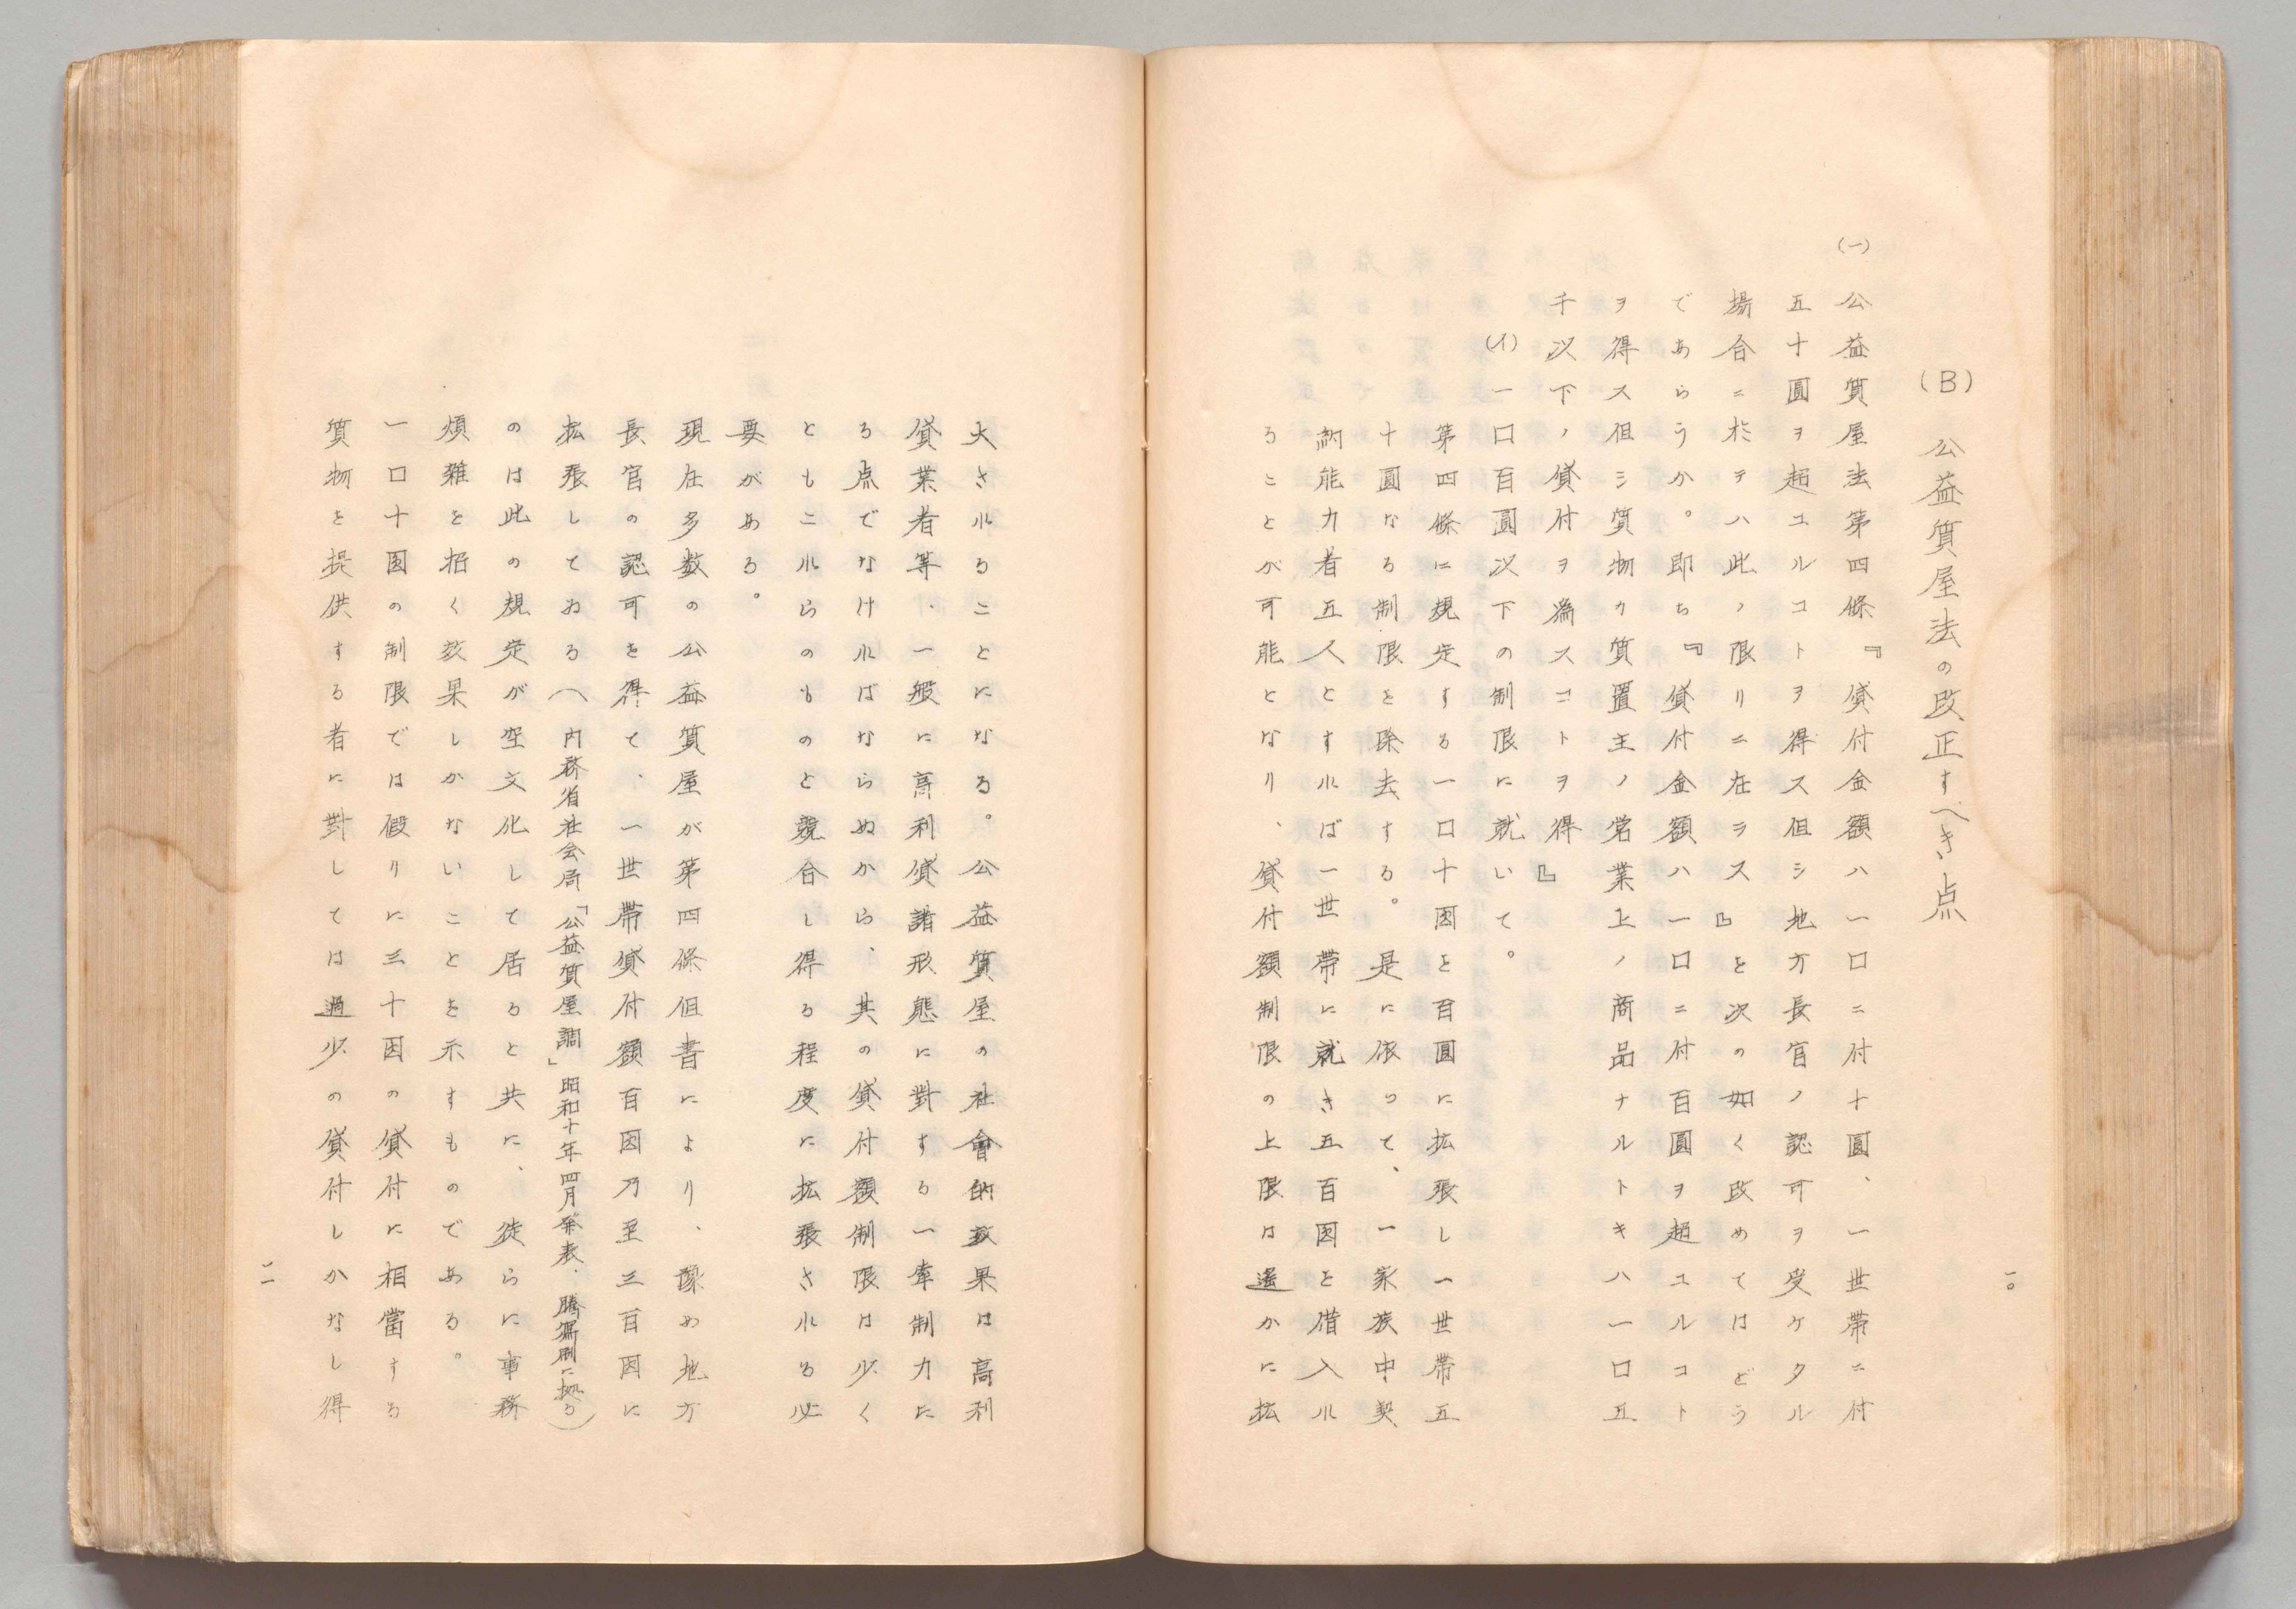 一〇
(B) 公益質屋法の改正すべき点
(一) 公益質屋法第四條『貸付金額ハ一口ニ付十圓、一世帯ニ付
五十圓ヲ超ユルコトヲ得ス但シ地方長官ノ認可ヲ受ケタル
場合ニ於テハ此ノ限リニ在ラス』を次の如く改めてはどう
であらうか。即ち『貸付金額ハ一口ニ付百圓ヲ超ユルコト
ヲ得ス但シ質物カ質置主ノ営業上ノ商品ナルトキハ一口五
千以下ノ貸付ヲ為スコトヲ得』
(イ) 一口百圓以下の制限に就いて。
第四條に規定する一口十圓を百圓に拡張し一世帯五
十圓なる制限を除去する。是に依って、一家族中契
約能力者五人とすれば一世帯に就き五百圓を借入れ
ることが可能となり、貸付額制限の上限は遙かに拡
大されることになる。公益質屋の社會的効果は高利
貸業者等、一般に高利貸諸形態に對する一牽制力た
る点でなければならぬから、其の貸付額制限は少く
ともこれらのものと競合し得る程度に拡張される必
要がある。
現在多数の公益質屋が第四條但書により、豫め地方
長官の認可を得て、一世帯貸付額百圓乃至三百圓に
拡張してゐる(内務省社会局「公益質屋調」昭和十年四月発表、謄寫刷に拠る)
のは此の規定が空文化して居ると共に、徒らに事務
煩雑を招く效果しかないことを示すものである。
一口十圓の制限では假りに三十圓の貸付に相當する
質物を提供する者に對しては過少の貸付しかなし得
一一